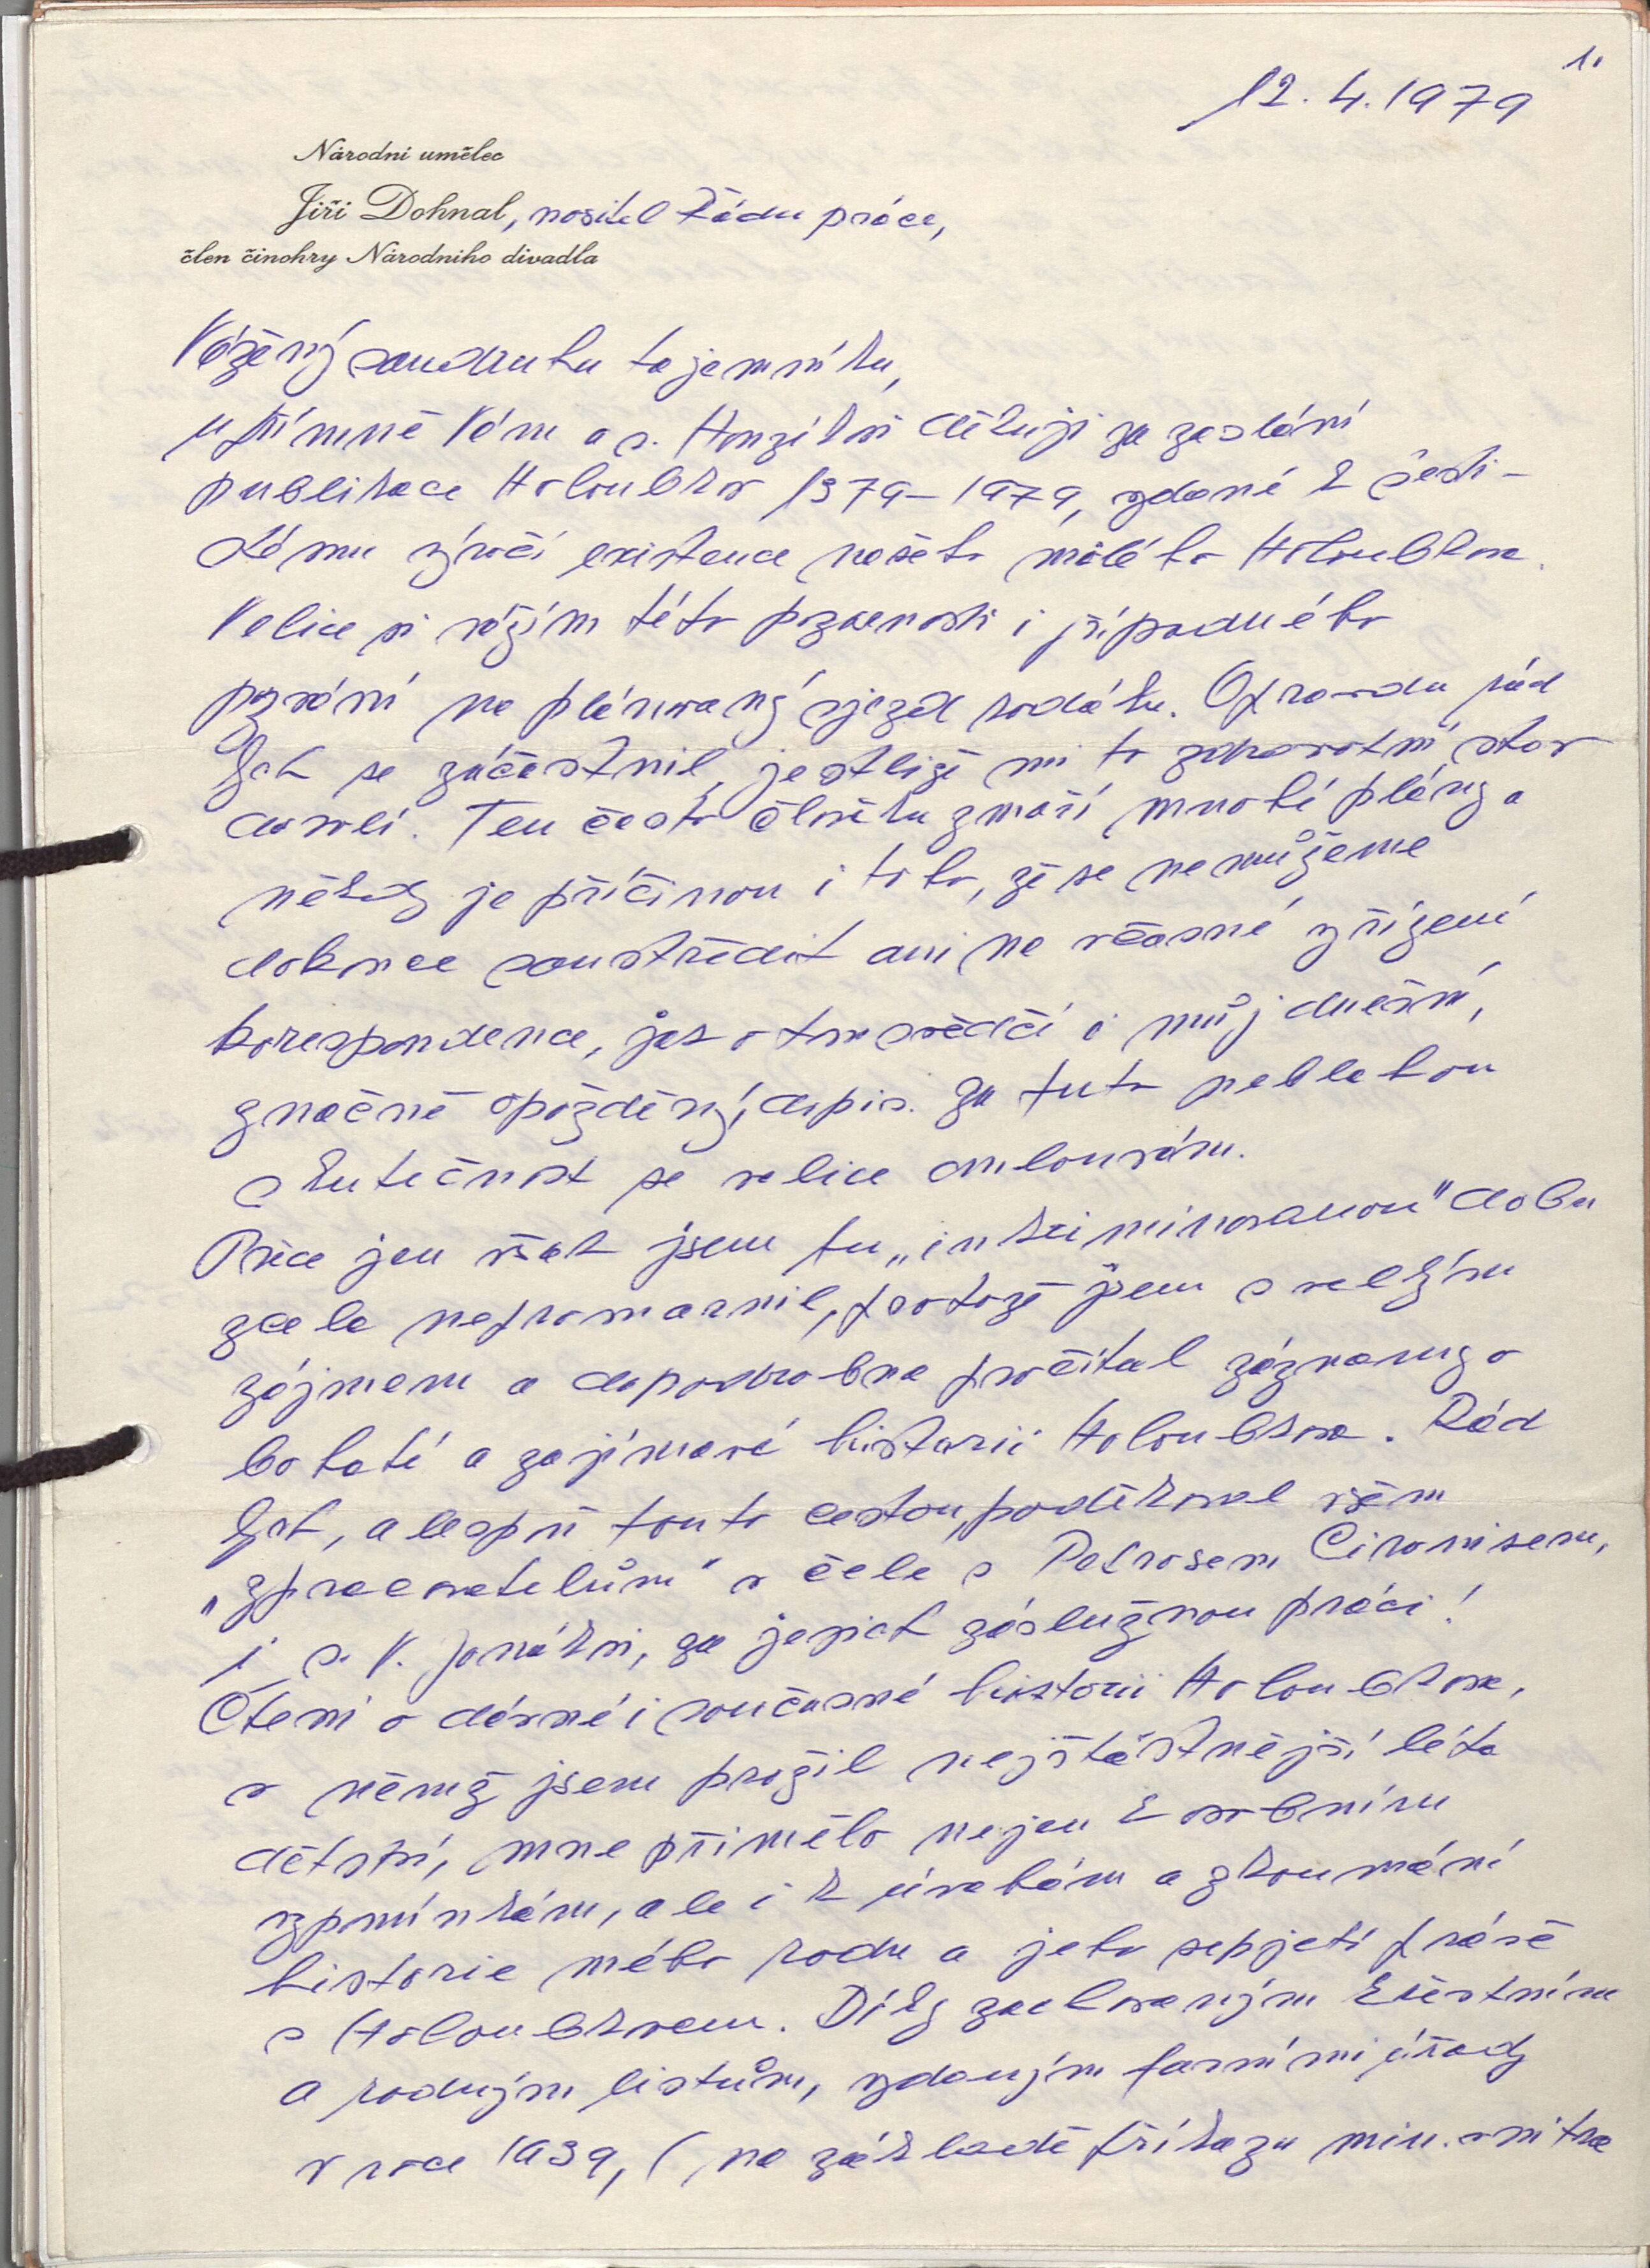 1.
12. 4. 1979
Národní umělec
Jiří Dohnal, nositel Řádu práce,
člen činohry Národního divadla
Vážený soudruhu tajemníku,
upřímně Vám a s. Honzíkovi děkuji za zaslání
publikace Holoubkov 1379–1979, vydané k šesti-
stému výročí existence našeho milého Holoubkova.
Velice si vážím této pozornosti i případného
pozvání na plánovaný sjezd rodáků. Opravdu rád
bych se zúčastnil, jestliže mi to zdravotní stav
dovolí. Ten často člověku zmaří mnohé plány a
někdy je příčinou i toho, že se nemůžeme
dokonce soustředit ani na včasné vyřízení
korespondence, jak o tom svědčí i můj dnešní,
značně opožděný, dopis. Za tuto neblahou
skutečnost se velice omlouvám.
Přece jen však jsem tu „inkriminovanou" dobu
zcela nepromarnil, protože jsem s velkým
zájmem a dopodrobna pročítal záznamy o
bohaté a zajímavé historii Holoubkova. Rád
bych, alespoň touto cestou, poděkoval všem
„zpracovatelům" v čele s Petrosem Cironisem,
i s. V. Jonákovi, za jejich záslužnou práci!
Čtení o dávné i současné historii Holoubkova,
v němž jsem prožil nejšťastnější léta
dětství, mne přimělo nejen k osobním
vzpomínkám, ale i k úvahám a zkoumání
historie mého rodu a jeho sepjetí právě
s Holoubkovem. Díky zachovaným křestním
a rodným listům, vydaným farními úřady
v roce 1939, (na základě příkazu min. vnitra